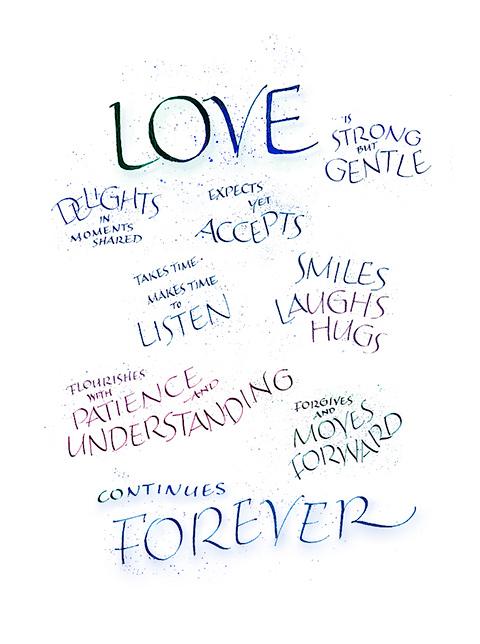 LOVE
IS
STRONG
BUT
GENTLE
DELIGHTS
IN
MOMENTS
SHARED
EXPECTS
YET
ACCEPTS
TAKES TIME·
MAKES TIME
TO
LISTEN
SMILES
LAUGHS
HUGS
FLOURISHES
WITH
PATIENCE
AND
UNDERSTANDING
FORGIVES
AND
MOVES
FORWARD
CONTINUES
FOREVER